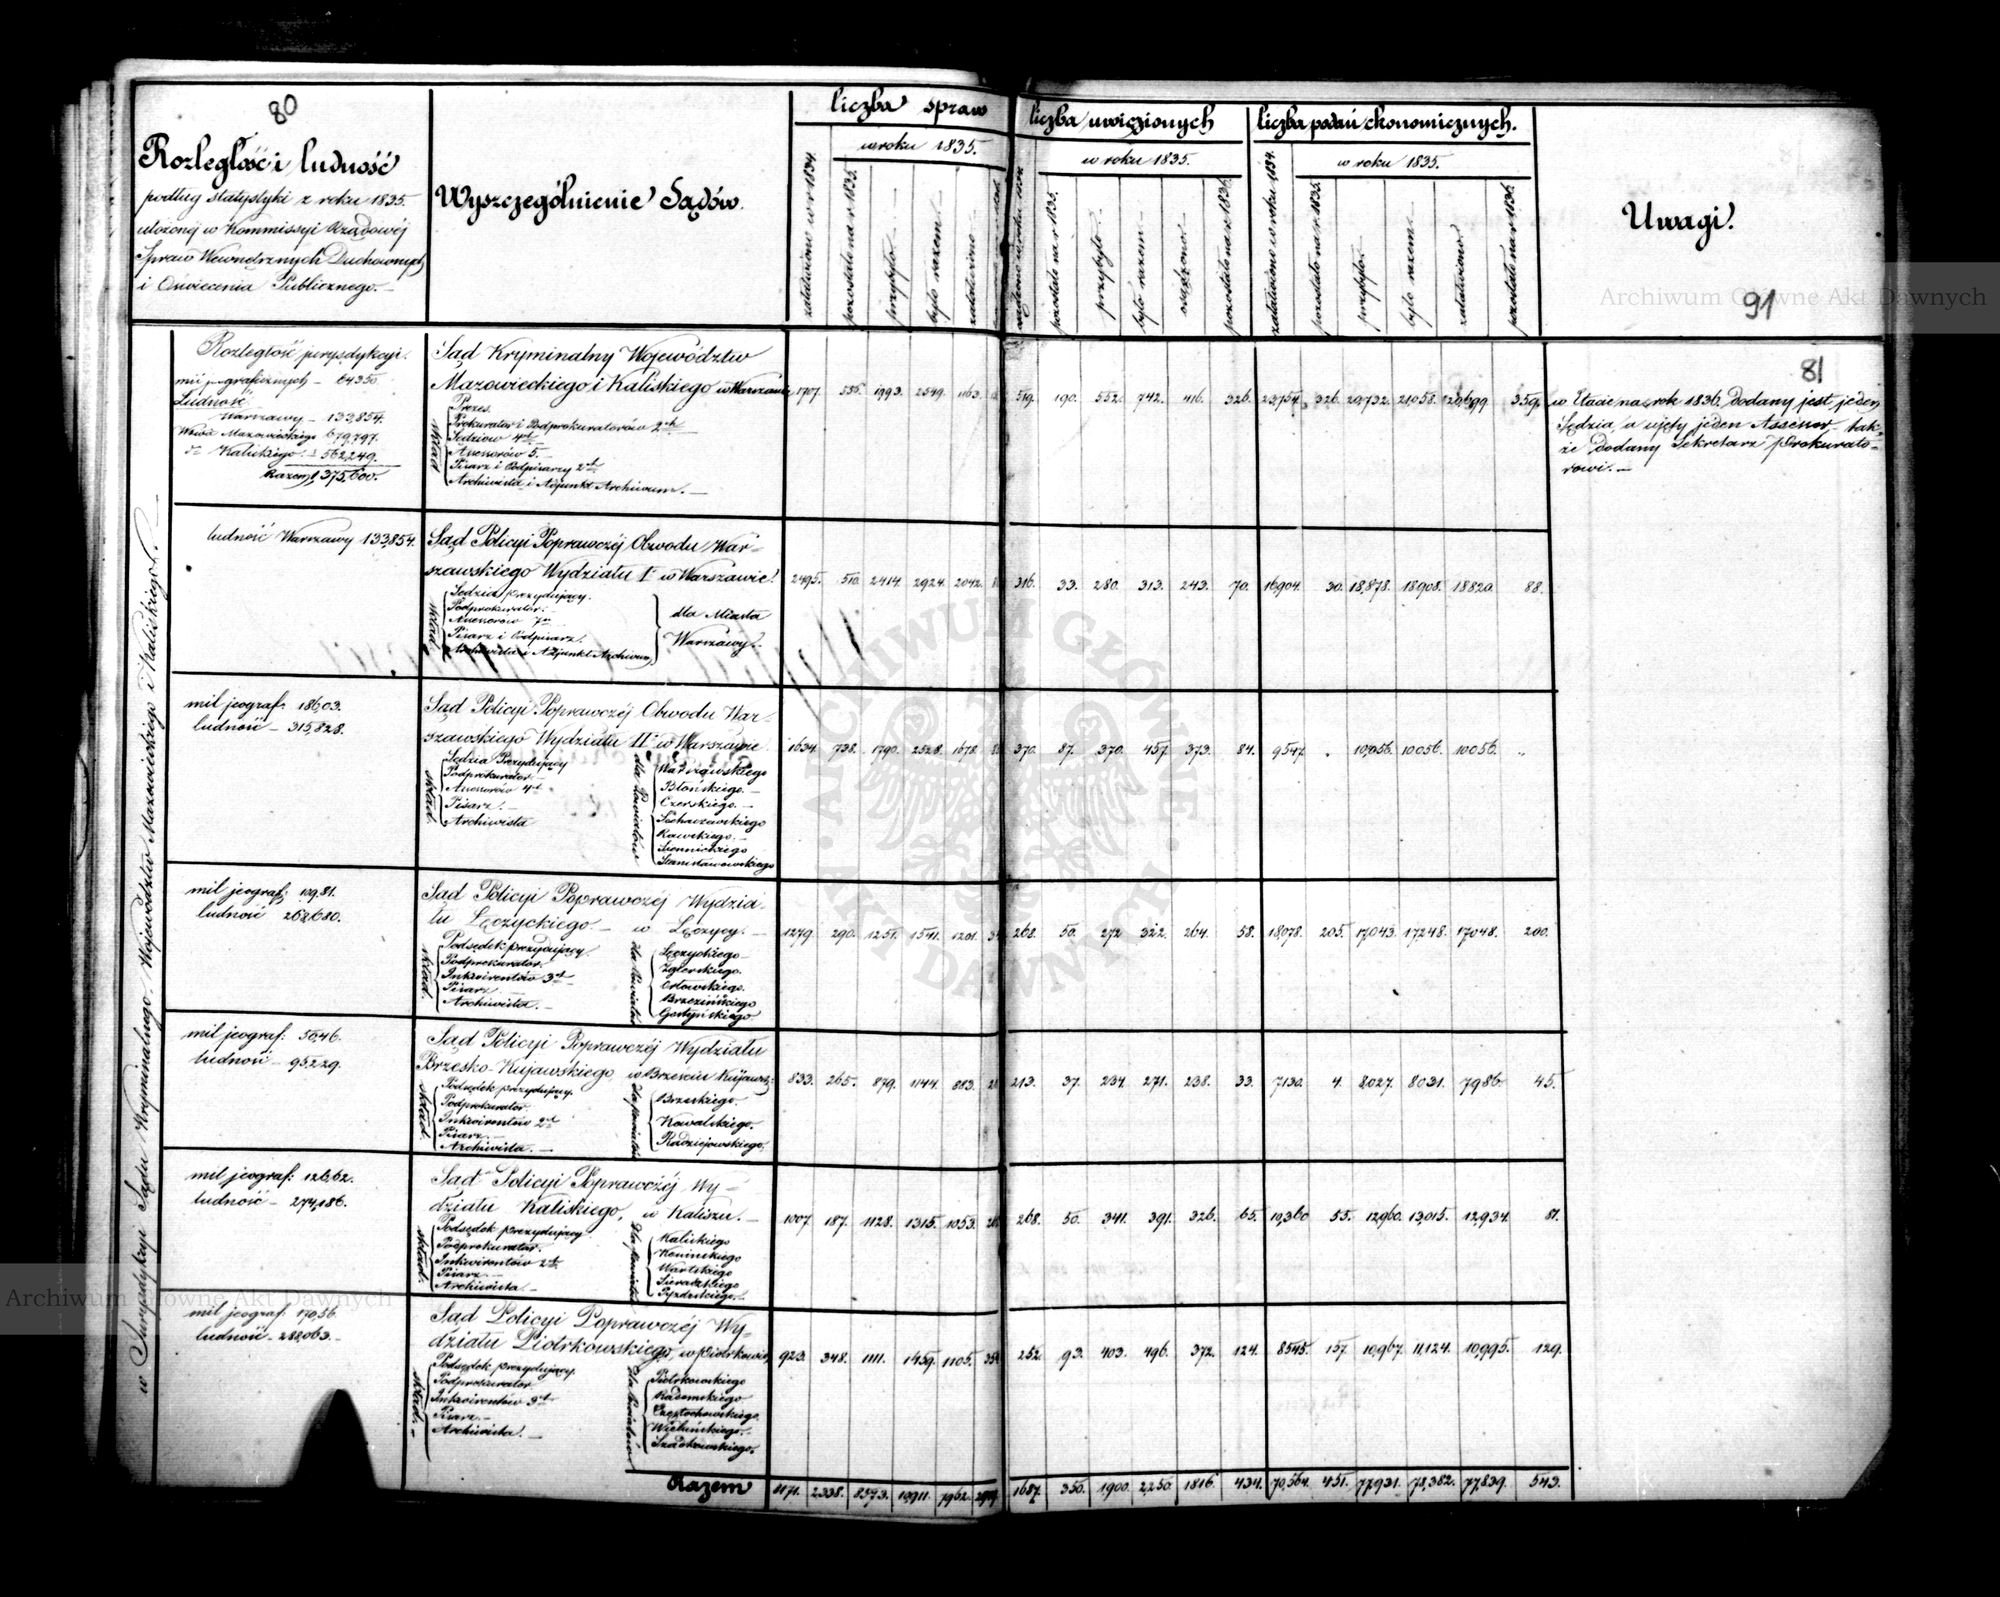 80
Rozległość i ludność
podług statystyki z roku 1835
ułożonéj w Kommissyi Rządowéj
Spraw Wewnętrznych Duchownych
i Oświecenia Publicznego.
Wyszczególnienie Sądów.
liczba spraw
w roku 1835.
załatwiono w r 1834.
pozostało na r 1835.
przybyło
było razem
załatwiono
liczba uwięzionych
w roku 1835.
pozostało na r 1835.
przybyło
było razem
osądzono
pozostało na r 1836.
liczba podań ekonomicznych.
w roku 1835.
załatwiono w roku 1834.
pozostało na r 1835.
przybyło
było razem
załatwiono
pozostało na r 1836.
Uwagi.
91
81
w Jurysdykcyi Sądu Kryminalnego Województw Mazowieckiego i Kaliskiego.
Rozległość jurysdykcyi.
Ludność
Warszawy — 133,854.
Wdwa Mazowieckiego 679,797.
Kaliskiego — 562,249.
Razem 1375,600.
Sąd Kryminalny Województw
Mazowieckiego i Kaliskiego w Warszawie
skład
Prezes
Prokurator i Podprokuratorów 2ch
Sędziów 4ch
Assessorów 5.
Pisarz i Podpisarzy 2ch
Archiwista i Adjunkt Archiwum.
1707. 556. 1993. 2549. 1163.
519. 190. 552. 742. 416. 326. 23,754. 326. 20,732. 21,058. 20,699 359.
w Etacie na rok 1836 dodany jest jeden
Sędzia, a ujęty jeden Assessor, tak-
że dodany Sekretarz Prokurato-
rowi.
ludność Warszawy 133,854.
Sąd Policyi Poprawczéj Obwodu War-
szawskiego Wydziału I w Warszawie.
skład
Sędzia Prezydujący.
Podprokurator.
Assessorów 7
Pisarz i Podpisarz.
Archiwista i Adjunkt Archiwum
dla Miasta
Warszawy.
2495. 510. 2414. 2924. 2042.
316. 33. 280. 313. 243. 70. 16,904. 30. 18,878. 18,908. 18820. 88.
mil jeograf: 186,03.
ludność — 315,828.
Sąd Policyi Poprawczéj Obwodu War-
szawskiego Wydziału II w Warszawie
skład
Sędzia Prezydujący
Podprokurator
Assessorów 4ch
Pisarz.
Archiwista
dla Powiatów
Warszawskiego
Błońskiego.
Czerskiego.
Sochaczewskiego
Rawskiego.
Siennickiego
Stanisławowskiego
1634. 738. 1790. 2528. 1678.
370. 87. 370. 457. 373. 84. 9547. „ 10,056. 10056. 10056. „
mil jeograf: 109,81.
ludność 268,680.
Sąd Policyi Poprawczéj Wydzia-
łu Łęczyckiego — w Łęczycy.
skład
Podsędek prezydujący.
Podprokurator.
Inkwirentów 3ch
Pisarz
Archiwista.
dla Powiatów
Łęczyckiego
Zgierskiego.
Orłowskiego.
Brzezińskiego
Gostyńskiego
1279. 290. 1251. 1541. 1201.
268. 50. 272 322. 264. 58. 18,078. 205. 17,043. 17248. 17048. 200.
mil jeograf: 50,46.
ludność — 95,229.
Sąd Policyi Poprawczéj Wydziału
Brzesko-Kujawskiego w Brześciu Kujaws:
skład
Podsędek prezydujący.
Podprokurator.
Inkwirentów 2ch
Pisarz.
Archiwista.
dla powiatów
Brzeskiego.
Kowalskiego.
Radziejowskiego.
833. 265. 879. 1144. 883.
213. 37. 234. 271. 238. 33. 7130. 4. 8,027. 8031. 7,986. 45.
mil jeograf: 126,62.
ludność — 274,186.
Sąd Policyi Poprawczéj Wy-
działu Kaliskiego, w Kaliszu.
skład
Podsędek prezydujący
Podprokurator.
Inkwirentów 2ch
Pisarz
Archiwista.
dla powiatów
Kaliskiego
Konińskiego
Wartskiego
Sieradzkiego
Pyzdrskiego.
1007. 187. 1128. 1315. 1053.
268. 50. 341. 391. 326. 65. 10,360 55. 12,960. 13,015. 12,934. 81.
mil jeograf: 170,56.
ludność — 288,063.
Sąd Policyi Poprawczéj Wy-
działu Piotrkowskiego, w Piotrkowie
skład
Podsędek prezydujący.
Podprokurator
Inkwirentów 3ch
Pisarz
Archiwista.
dla Powiatów
Piotrkowskiego
Radomskiego
Częstochowskiego.
Wieluńskiego.
Szadkowskiego.
923. 348. 1111. 1459. 1105. 354
252 93. 403. 496. 372. 124. 8545. 157. 10,967. 11,124. 10,995. 129.
Razem 8171. 2338. 8573. 10,911. 7962. 2949
1687. 350. 1900. 2,250. 1816. 434. 70,564. 451. 77,931. 78,382. 77,839. 543.
Archiwum Główne Akt Dawnych
Archiwum Główne Akt Dawnych
ARCHIWUM GŁÓWNE AKT DAWNYCH